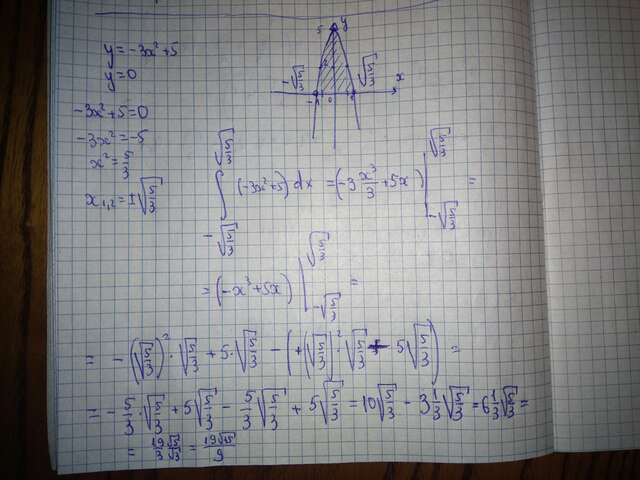 y = -3x² + 5
y = 0
-3x² + 5 = 0
-3x² = -5
x² = 5/3
x₁,₂ = ±√(5/3)
y
5
0
x
-√(5/3)
√(5/3)
∫_{-√(5/3)}^{√(5/3)} (-3x² + 5) dx = (-3 x³/3 + 5x) |_{-√(5/3)}^{√(5/3)} =
= (-x³ + 5x) |_{-√(5/3)}^{√(5/3)} =
= -(√(5/3))² · √(5/3) + 5 · √(5/3) - (+(√(5/3))² · √(5/3) + 5√(5/3)) =
= -5/3 · √(5/3) + 5√(5/3) - 5/3 √(5/3) + 5√(5/3) = 10√(5/3) - 3 1/3 √(5/3) = 6 1/3 √(5/3) =
= 19√5 / 3√3 = 19√15 / 9